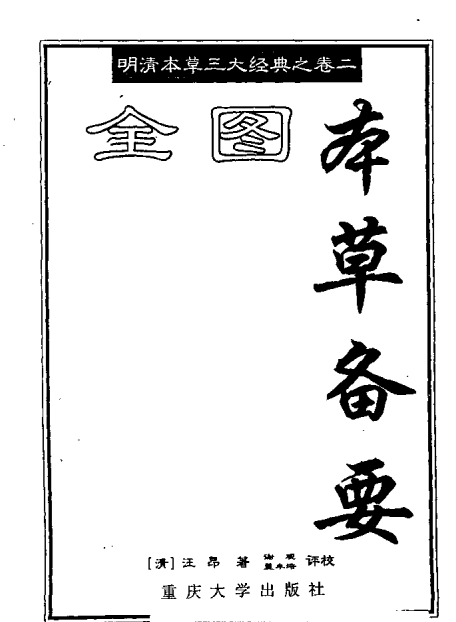 明清本草三大经典之卷二
全图
本草备要
[清]汪昂 著 评校
重庆大学出版社